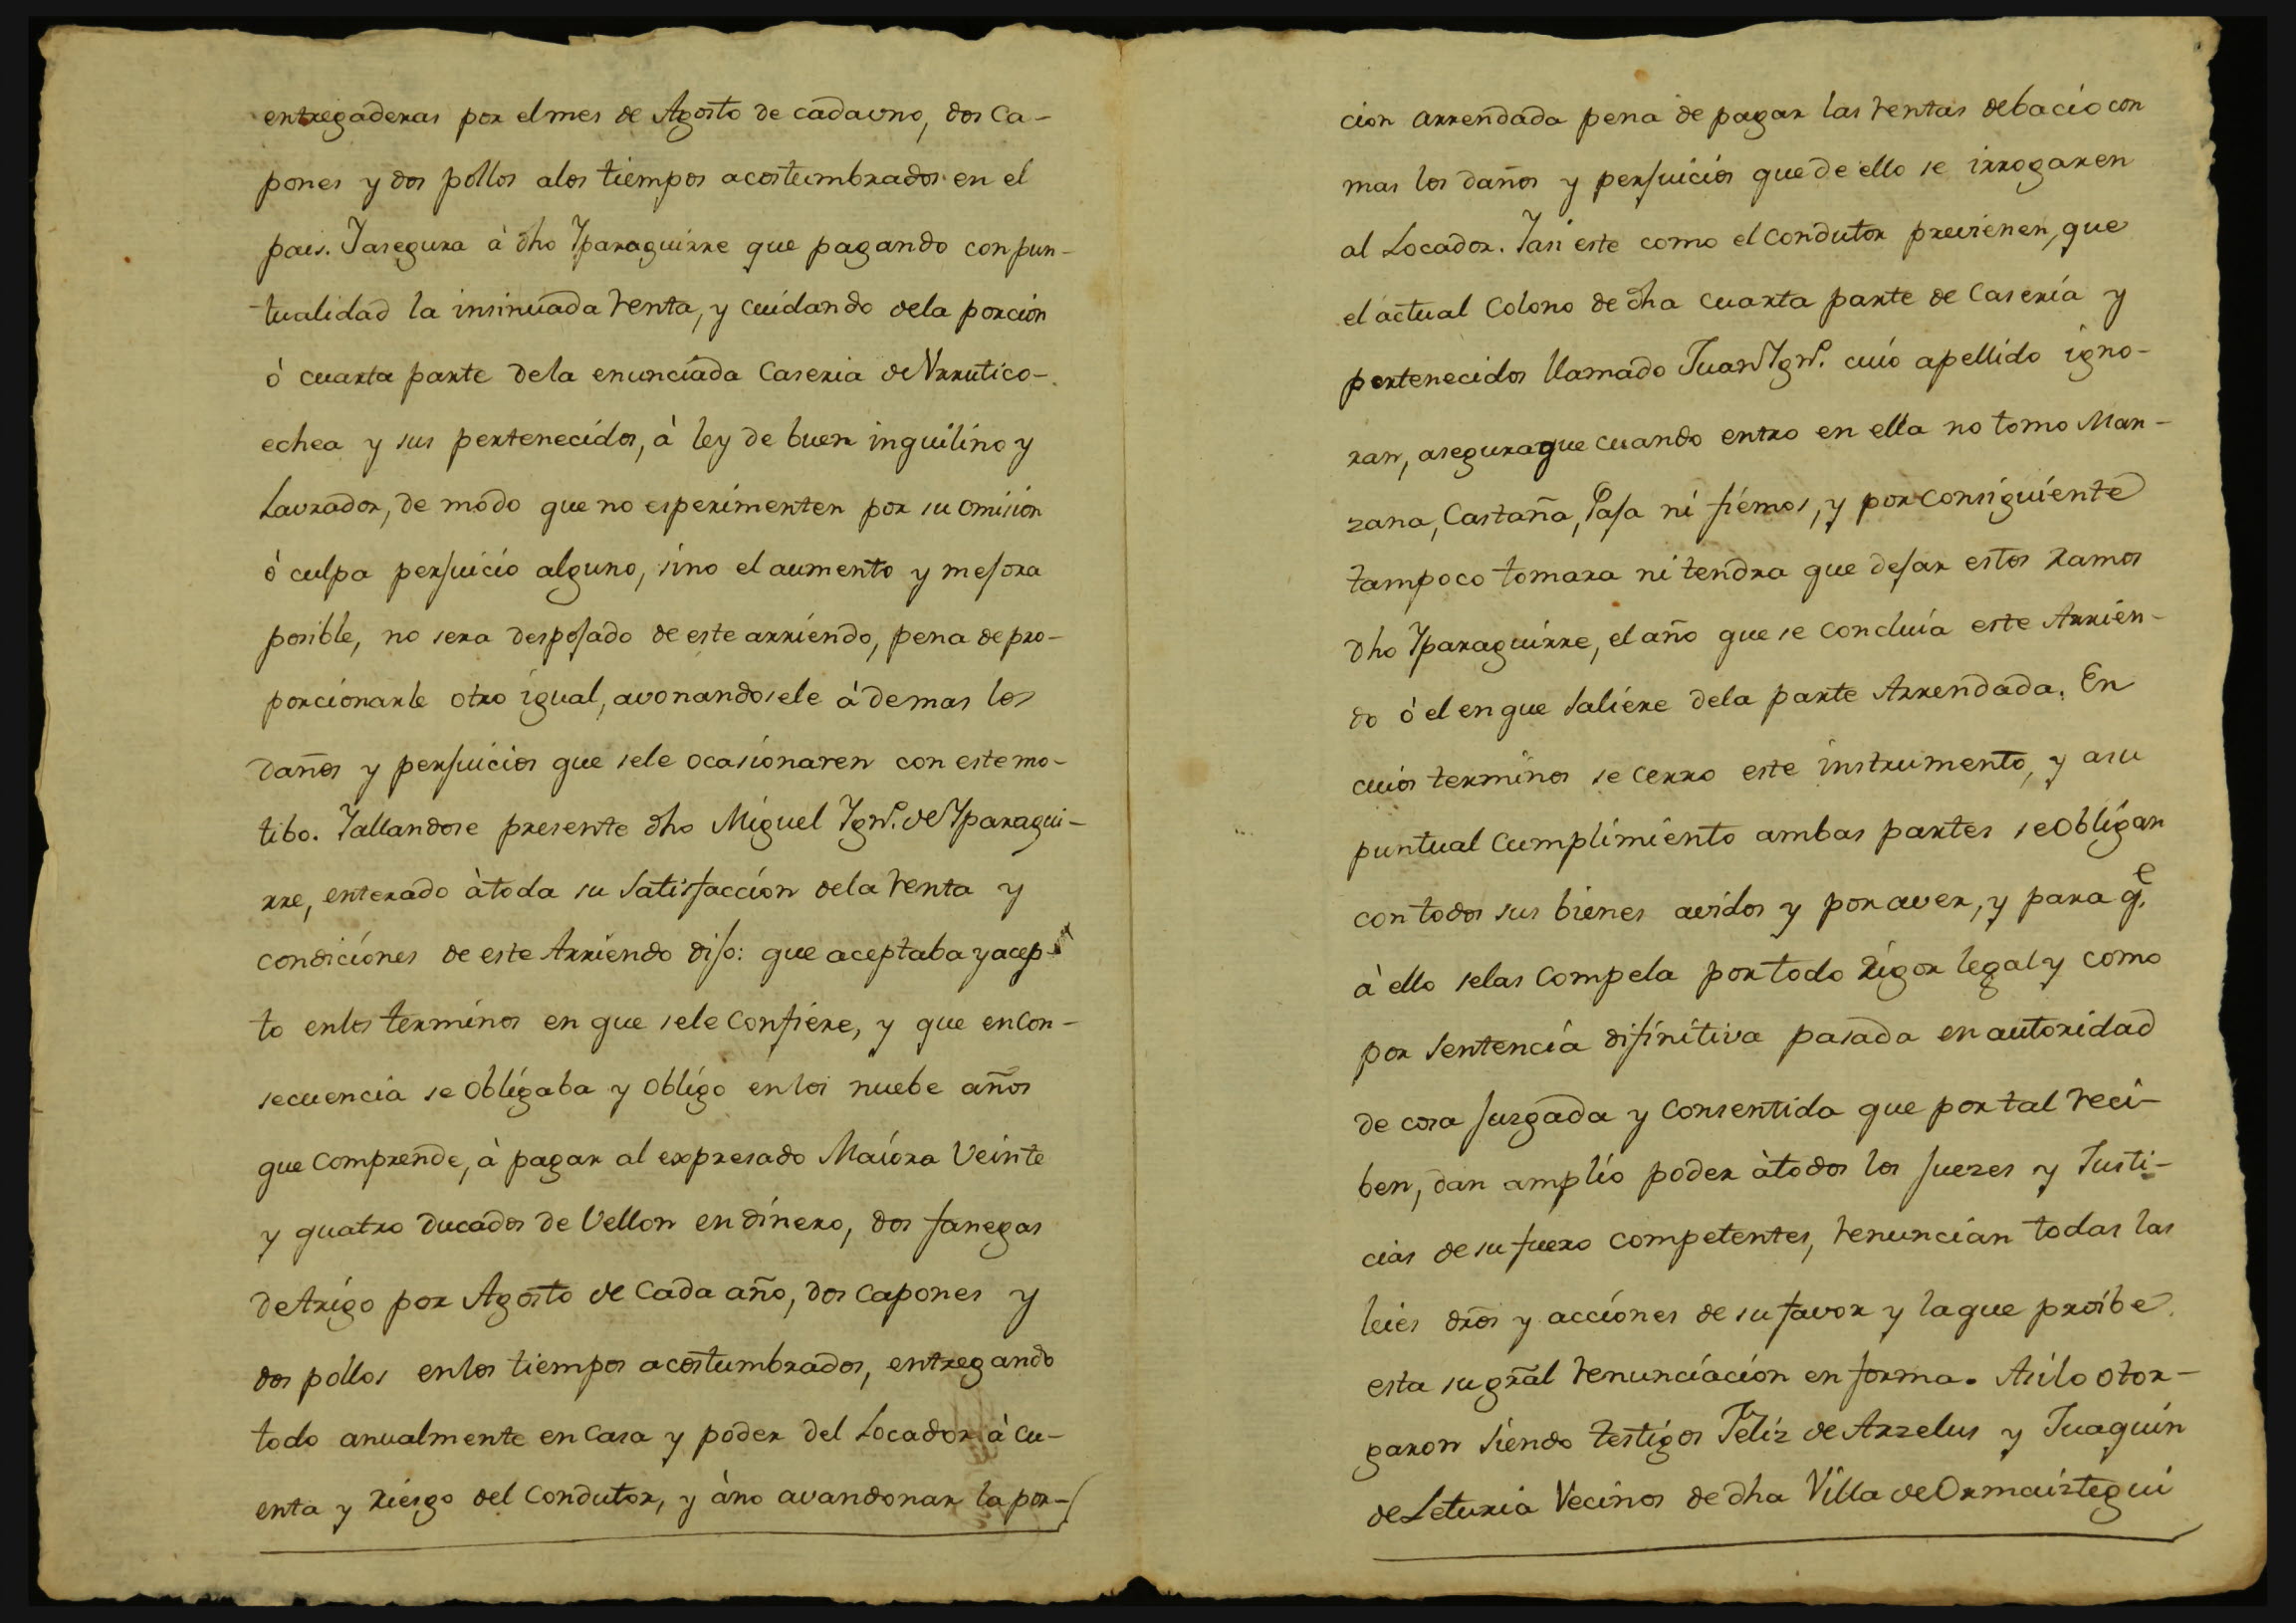 entregaderas por el mes de Agosto de cadauno, dos Ca-
pones y dos pollos alos tiempos acostumbrados en el
pais. Yasegura à dho Yparaguirre que pagando con pun-
tualidad la insinuada renta, y cuidando dela porcion
ò cuarta parte dela enunciada Caseria de Urrutico-
echea y sus pertenecidos, à ley de buen inquilino y
Lavrador, de modo que no esperimenten por su omision
ò culpa perjuicio alguno, sino el aumento y mejora
posible, no sera despojado de este arriendo, pena de pro-
porcionarle otro igual, avonandosele àdemas los
daños y perjuicios que sele ocasionaren con este mo-
tibo. Yallandose presente dho Miguel Ygn.º de Yparagui-
rre, enterado àtoda su Satisfaccion dela renta y
condiciones de este Arriendo dijo: que aceptaba y acep-
to enlos terminos en que sele Confiere, y que encon-
secuencia se Obligaba y Obligo enlos nuebe años
que Comprende, à pagar al expresado Maiora Veinte
y quatro ducados de Vellon en dinero, dos fanegas
de trigo por Agosto de Cada año, dos Capones y
dos pollos enlos tiempos acostumbrados, entregando
todo anualmente en Casa y poder del Locador à cu-
enta y riesgo del Condutor, y àno avandonar la por-
cion arrendada pena de pagar las rentas debacio con
mas los daños y perjuicios que de ello se irrogaren
al Locador. Yasi este como el Condutor previenen, que
el actual Colono de dha Cuarta parte de Caseria y
pertenecidos llamado Juan Ygn.º cuio apellido igno-
ran, asegura que cuando entro en ella no tomo Man-
zana, Castaña, Paja ni fiemos, y por Consiguiente
tampoco tomara ni tendra que dejar estos ramos
dho Yparaguirre, el año que se Concluia este Arrien-
do ò el en que Saliere dela parte Arrendada. En
cuios terminos se cerro este instrumento, y asu
puntual Cumplimiento ambas partes se Obligan
con todos sus bienes avidos y por aver, y para q.e
à ello selas Compela por todo rigor legal y como
por Sentencia difinitiva pasada en autoridad
de cosa juzgada y Consentida que por tal reci-
ben, dan amplio poder àtodos los juezes y Justi-
cias de su fuero Competentes, renuncian todas las
leies dr̃os y acciones de su favor y la que proibe
esta su gr̃al renunciacion en forma. Asilo otor-
garon Siendo testigos Feliz de Arzelus y Juaquin
de Leturia Vecinos de dha Villa de Ormaiztegui